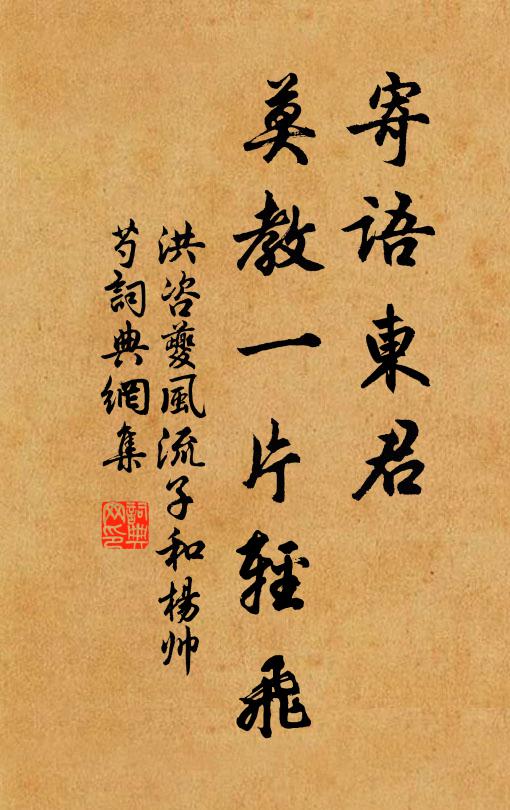 寄語東君
莫教一片輕飛
洪咨夔風流子和楊帅
芍詞典網集
詞典网印